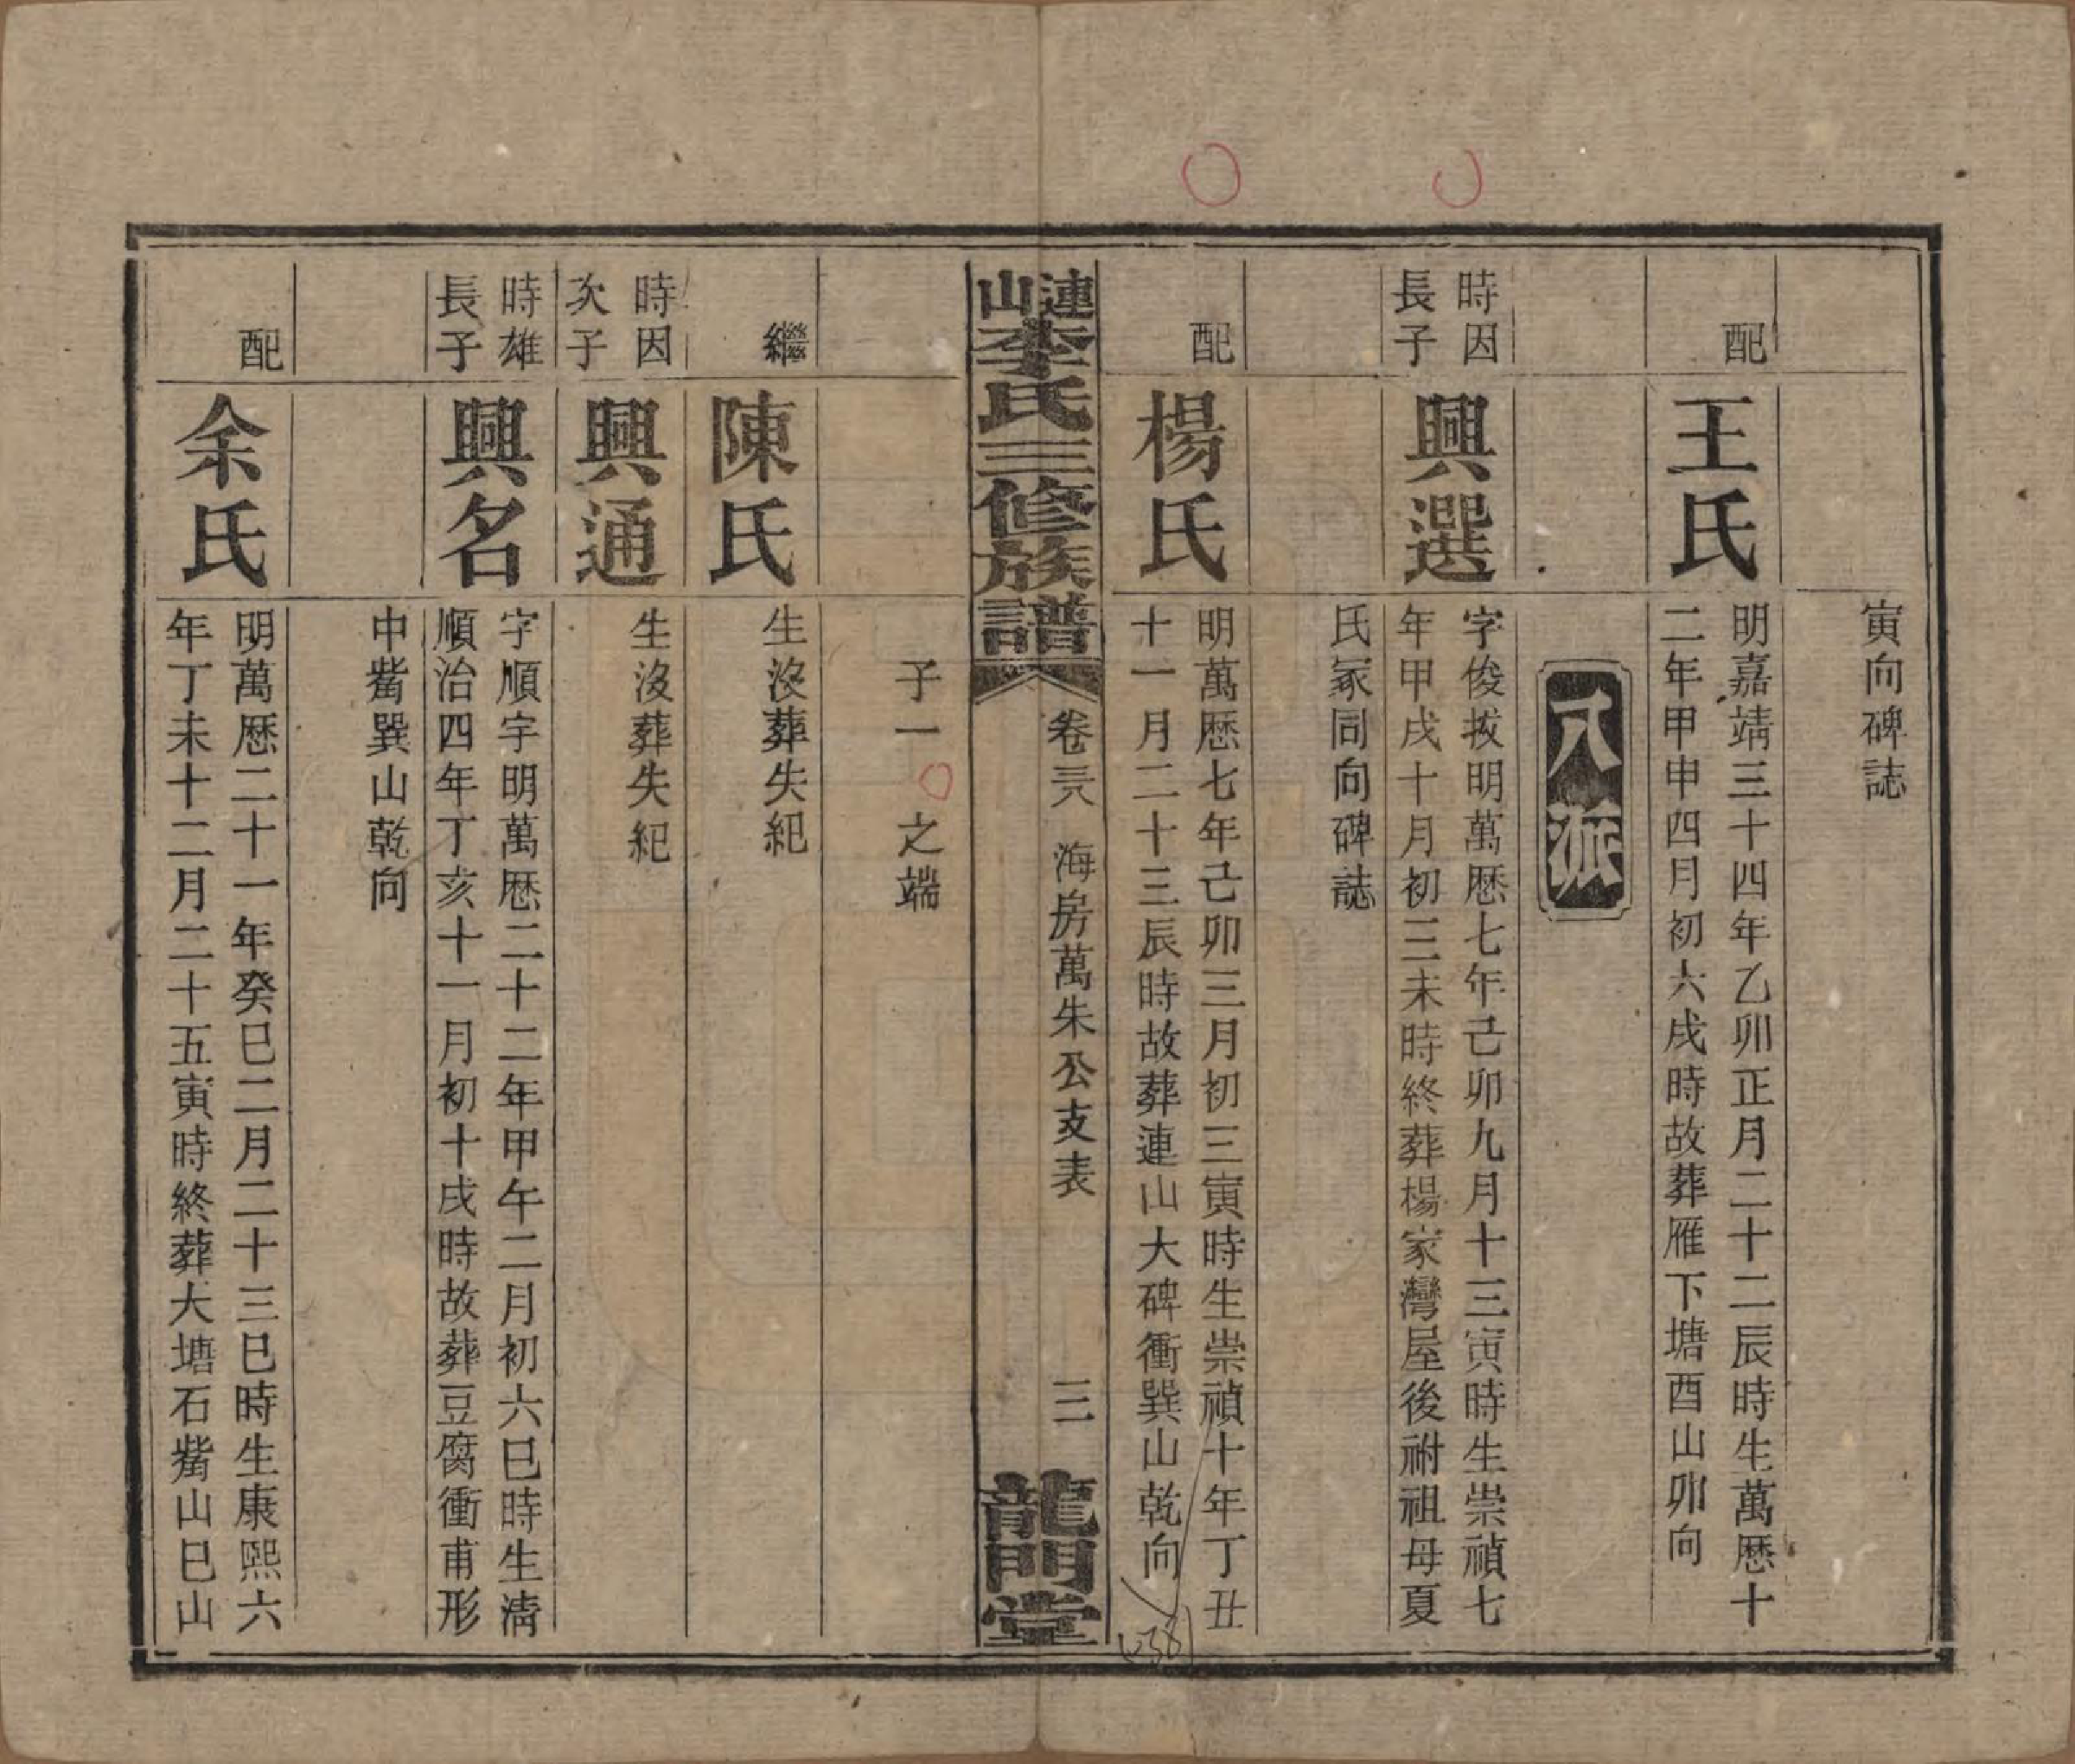 寅向碑誌
配
王氏
明嘉靖三十四年乙卯正月二十二辰時生萬歷十
二年甲申四月初六戌時故葬雁下塘酉山卯向
八派
時因
長子
興選
字俊拔明萬歷七年己卯九月十三寅時生崇禎七
年甲戌十月初三未時終葬楊家灣屋後祔祖母夏
氏冢同向碑誌
配
楊氏
明萬歷七年己卯三月初三寅時生崇禎十年丁丑
十一月二十三辰時故葬連山大碑衝巽山乾向
連山李氏三修族譜
卷三八 海房萬朱公支表
三
龍門堂
子一 之端
繼
陳氏
生沒葬失紀
時因
次子
興通
生沒葬失紀
時雄
長子
興名
字順宇明萬歷二十二年甲午二月初六巳時生清
順治四年丁亥十一月初十戌時故葬豆腐衝甫形
中觜巽山乾向
配
余氏
明萬歷二十一年癸巳二月二十三巳時生康熙六
年丁未十二月二十五寅時終葬大塘石觜山巳山